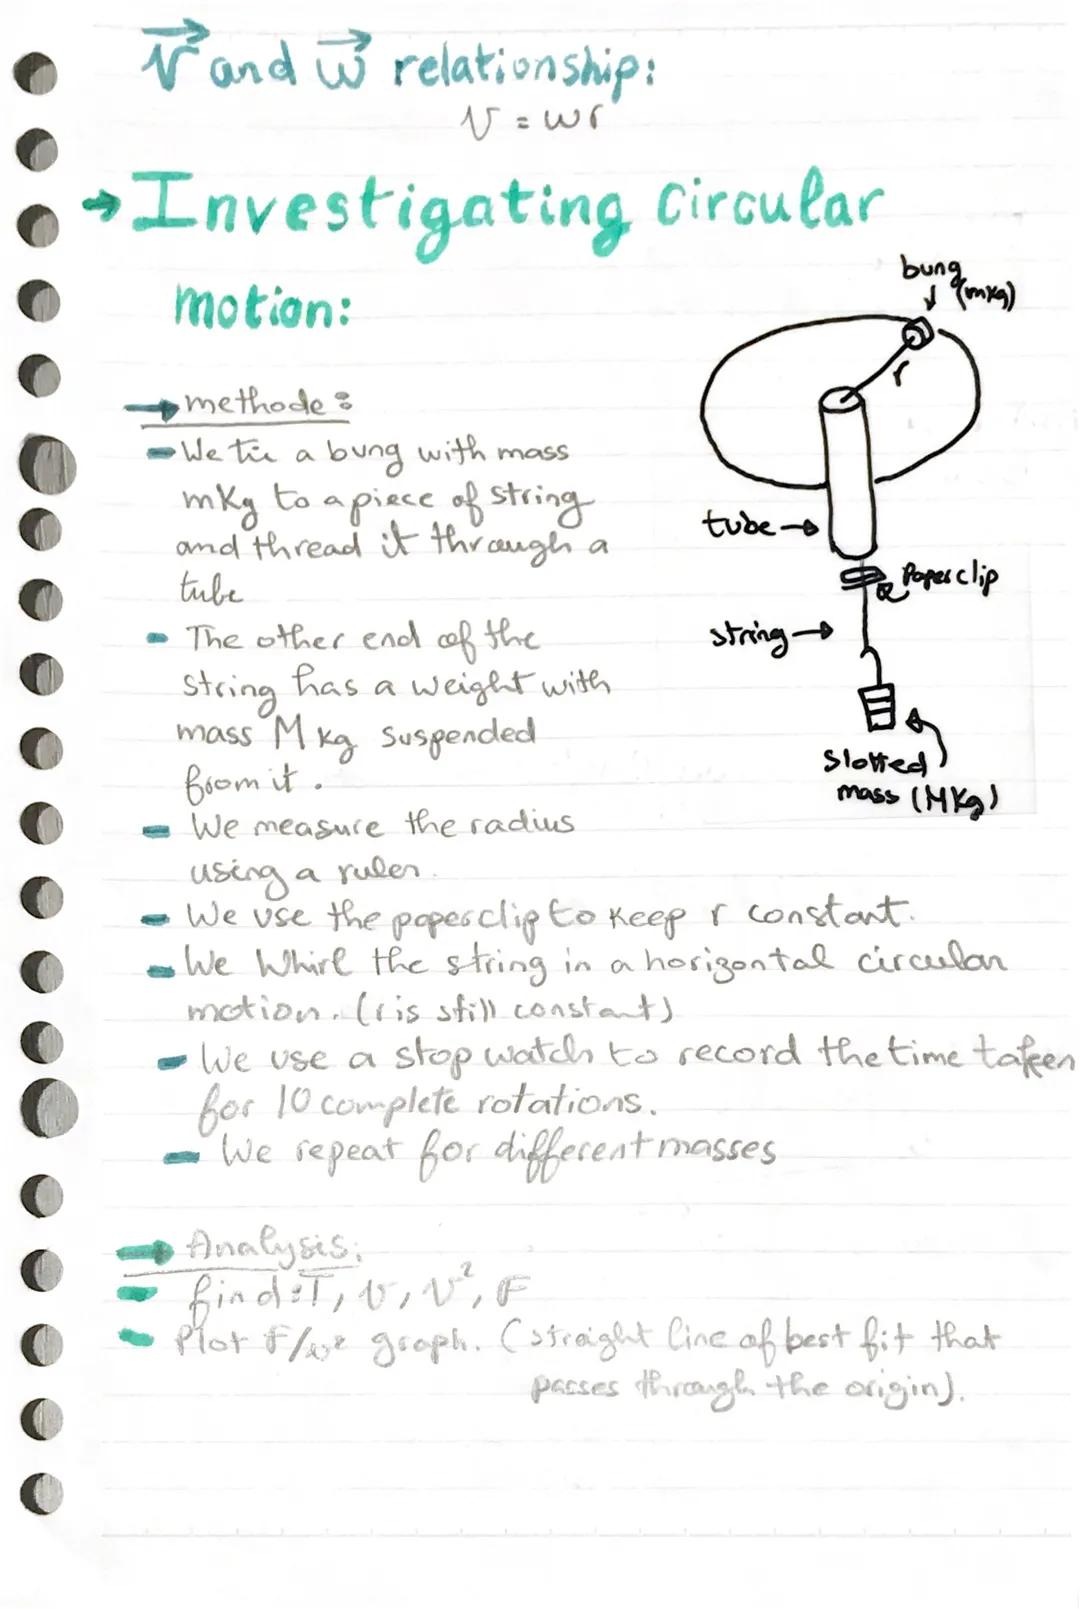 V and ω relationship:
V = ωr
→ Investigating circular
motion:
bung
(mkg)
r
→ methode:
- We tie a bung with mass
mKg to a piece of string
and thread it through a
tube
tube →
Paperclip
- The other end of the
string →
string has a weight with
mass M kg suspended
from it.
Slotted
mass (MKg)
- We measure the radius
using a ruler.
- We use the paperclip to keep r constant.
- We Whirl the string in a horizontal circular
motion. (r is still constant)
- We use a stop watch to record the time taken
for 10 complete rotations.
- We repeat for different masses
→ Analysis:
- find: T, v, v², F
- Plot F/ graph. (straight line of best fit that
passes through the origin).